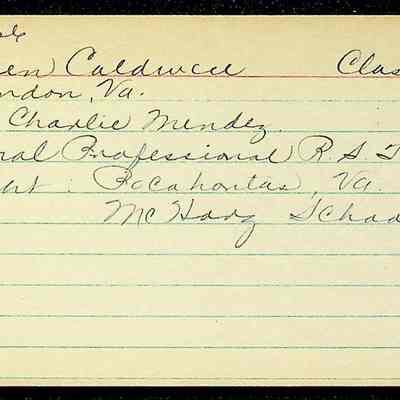 en Caldwell Clas
ndon, Va.
Charlie Mendez
ral Professional R. S. T
ert : Pocahontas, Va.
McHarg Schoo